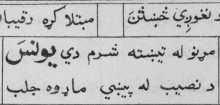 د لغوړي څښتن مبتلا کړه رقیبا
مړنو له تیښته شرم دي یونس
د نصیب له پیښې ماړوه جلب